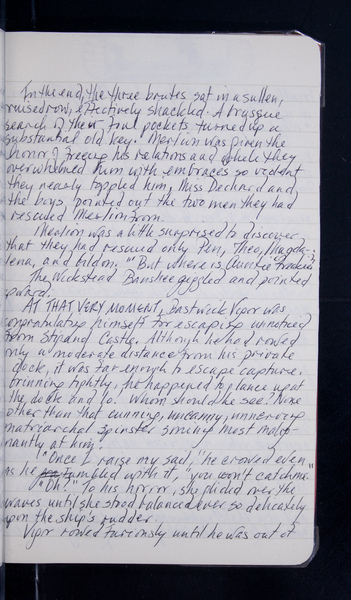 In the end, the three brutes sat in a sullen,
bruised row, effectively shackled. A brusque
search of their foul pockets turned up a
substantial old key. Merlin was given the
honor of freeing his relations and while they
overwhelmed him with embraces so violent
they nearly toppled him, Miss Dechard and
the boys pointed out the two men they had
rescued Merlin from.
Merlin was a little surprised to discover
that they had rescued only Pen, Theo, Magda-
lena, and Eldon. "But where is Auntie
The Wickstead Banshee giggled and pointed
AT THAT VERY MOMENT, Bastwick Vipor was
congratulating himself for escaping unnoticed
from Stipand Castle. Although he had rowed
only a moderate distance from his private
dock, it was far enough to escape capture.
Grinning tightly, he happened to glance up at
the dock and lo! Whom should he see? None
other than that cunning, uncanny, unnerving
matriarchal spinster smiling most malig-
nantly at him.
"Once I raise my sail," he crowed even
as he fumbled with it, "you won't catch me."
"Oh!" To his horror, she glided over the
waves until she stood balanced ever so delicately
upon the ship's rudder.
Vipor rowed furiously until he was out of